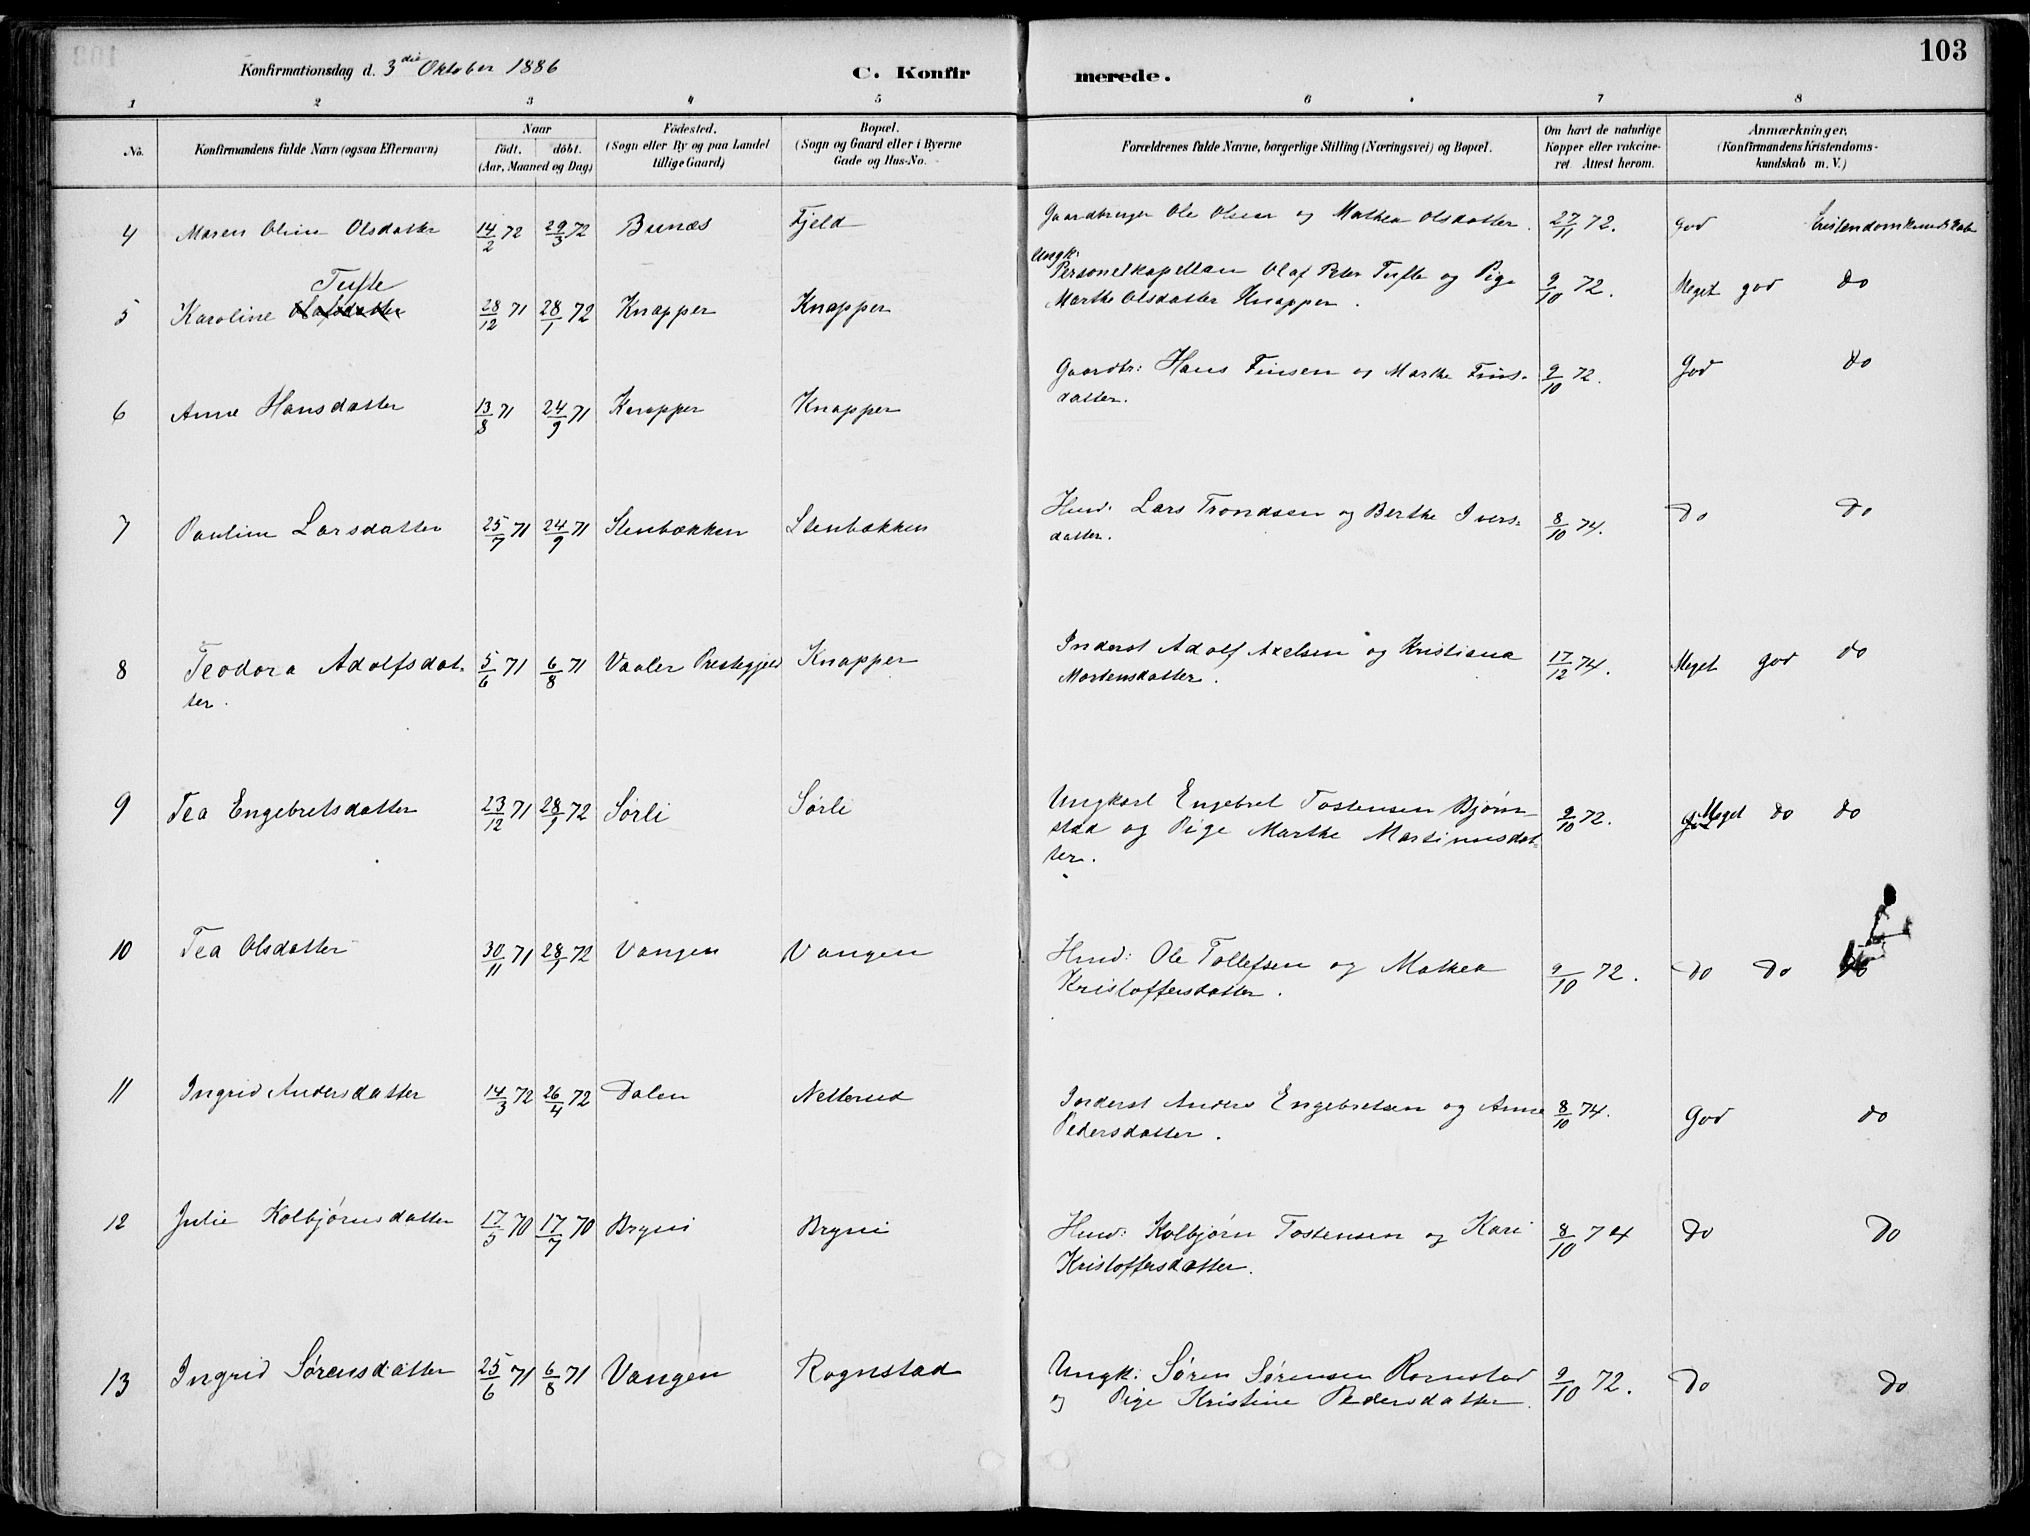 103
Konfirmationsdag d. 3die Oktober 1886
C. Konfirmerede.
1 2 3 4 5 6 7 8
No.
Konfirmandens fulde Navn (ogsaa Efternavn)
Naar
født. døbt.
(Aar, Maaned og Dag)
Födested.
(Sogn eller By og paa Landet
tillige Gaard)
Bopæl.
(Sogn og Gaard eller i Byerne
Gade og Hus-No.
Forældrenes fulde Navne, borgerlige Stilling (Næringsvei) og Bopæl.
Om havt de naturlige
Kopper eller vakcine-
ret. Attest herom.
Anmærkninger.
(Konfirmandens Kristendoms-
kundskab m. V.)
4 Maren Oline Olsdatter 14/2 72 29/3 72 Bunæs Fjeld Gaardbruger Ole Olsen og Mathea Olsdatter. 27/11 72. God Kristendomskundskab
Tufte
Ungk:
5 Karoline Olafsdatter 28/12 71 28/1 72 Knapper Knapper Personelkapellan Olaf Peter Tufte og Pige
Marthe Olsdatter Knapper. 9/10 72. Meget god do
6 Anne Hansdatter 13/8 71 24/9 71 Knapper Knapper Gaardbr: Hans Finsen og Marthe Fins-
datter. 9/10 72. God do
7 Pauline Larsdatter 25/7 71 24/9 71 Stenbækken Stenbækken Husd: Lars Trondsen og Berthe Ivers-
datter. 8/10 74. Do Do
8 Teodora Adolfsdat- 5/6 71 6/8 71 Vaaler Prestegjeld Knapper Inderst Adolf Axelsen og Kristiana
ter. Mortensdatter. 17/12 74. Meget god do
9 Tea Engebretsdatter 23/12 71 28/1 72 Sørli Sørli Ungkarl Engebret Tostensen Bjørn-
stad og Pige Marthe Martinusdat-
ter. 9/10 72. Meget do do
10 Tea Olsdatter 30/11 71 28/1 72 Vangen Vangen Husd: Ole Tollefsen og Mathea
Kristoffersdatter. 9/10 72. Do Do do
11 Ingrid Andersdatter 14/3 72 26/4 72 Dalen Netterud Inderst Anders Engebretsen og Anne
Pedersdatter. 8/10 74. God do
12 Julie Kolbjørnsdatter 17/5 70 17/7 70 Bryni Bryni Husd: Kolbjørn Tostensen og Kari
Kristoffersdatter. 8/10 74 Do Do
13 Ingrid Sørensdatter 25/6 71 6/8 71 Vangen Rognstad Ungk: Søren Sørensen Rornstad
og Pige Kristine Pedersdatter. 9/10 72. Do Do